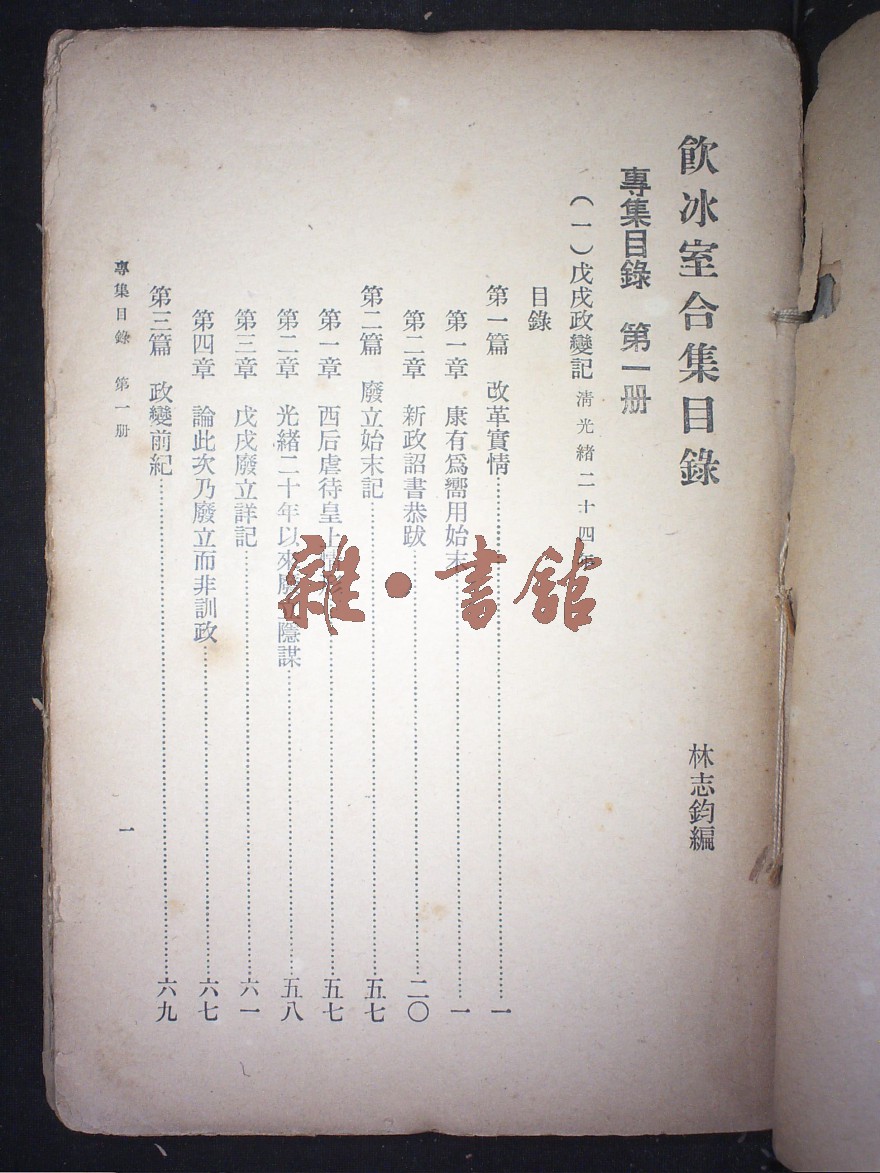 飲冰室合集目錄
林志鈞編
專集目錄 第一册
(一)戊戌政變記 清光緒二十四年
目錄
第一篇 改革實情……一
第一章 康有爲嚮用始末……一
第二章 新政詔書恭跋……二〇
第二篇 廢立始末記……五七
第一章 西后虐待皇上……五七
第二章 光緒二十年以來廢立隱謀……五八
第三章 戊戌廢立詳記……六一
第四章 論此次乃廢立而非訓政……六七
第三篇 政變前紀……六九
專集目錄 第一册
一
雜·書舘